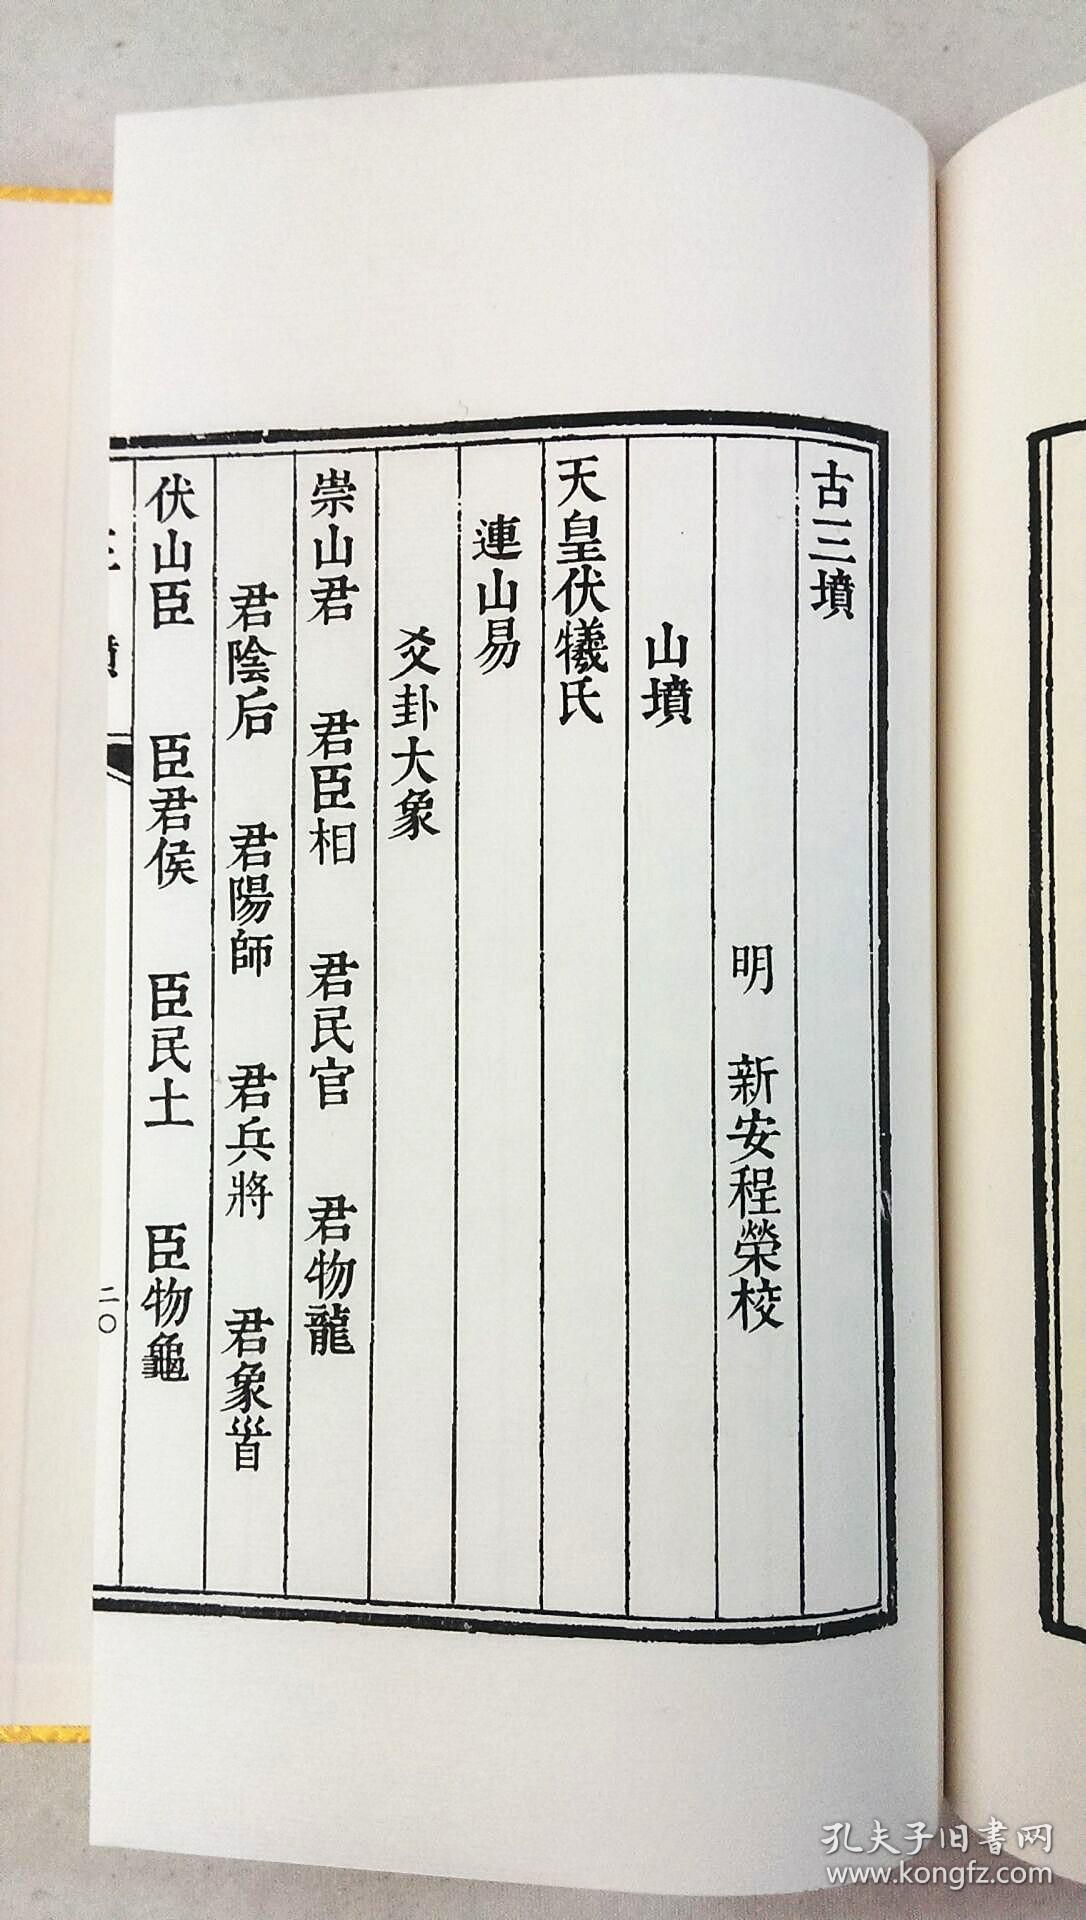 古三墳
明 新安程榮校
山墳
天皇伏犧氏
連山易
爻卦大象
崇山君 君臣相 君民官 君物龍
君陰后 君陽師 君兵將 君象首
伏山臣 臣君侯 臣民土 臣物龜
三墳
二〇
孔夫子旧書网
www.kongfz.com